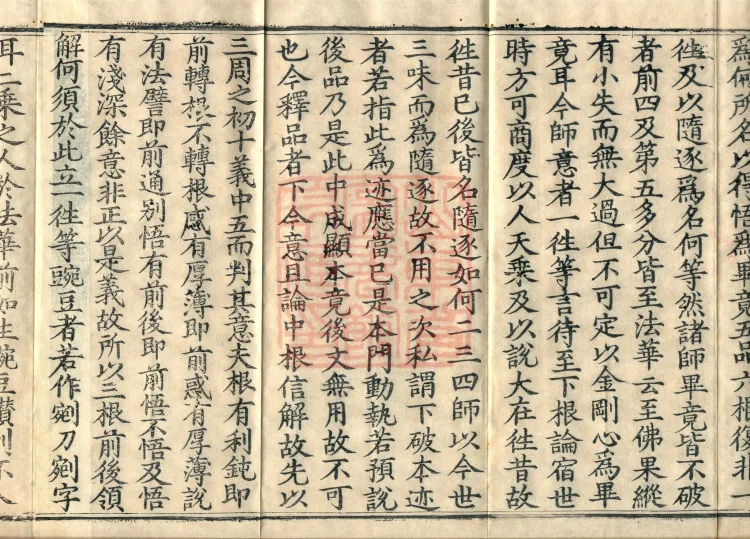 爲何所名以得悟爲畢竟五品六根復非一
徃及以隨逐爲名何等然諸師畢竟皆不破
者前四及第五多分皆至法華云至佛果縱
有小失而無大過但不可定以金剛心爲畢
竟耳今師意者一徃等言待至下根論宿世
時方可商度以人天乗及以說大在徃昔故
徃昔已後皆名隨逐如何二三四師以今世
三味而爲隨逐故不用之次私謂下破本迹
者若指此爲迹應當已是本門動執若預說
後品乃是此中成顯本竟後文無用故不可
也今釋品者下今意且論中根信解故先以
三周之初十義中五而判其意夫根有利鈍即
前轉根不轉根感有厚薄即前惑有厚薄說
有法譬即前通別悟有前後即前悟不悟及悟
有淺深餘意非正以是義故所以三根前後領
解何須於此立一徃等豌豆者若作剜刀剜字
耳二乘之人於法華前如生豌豆